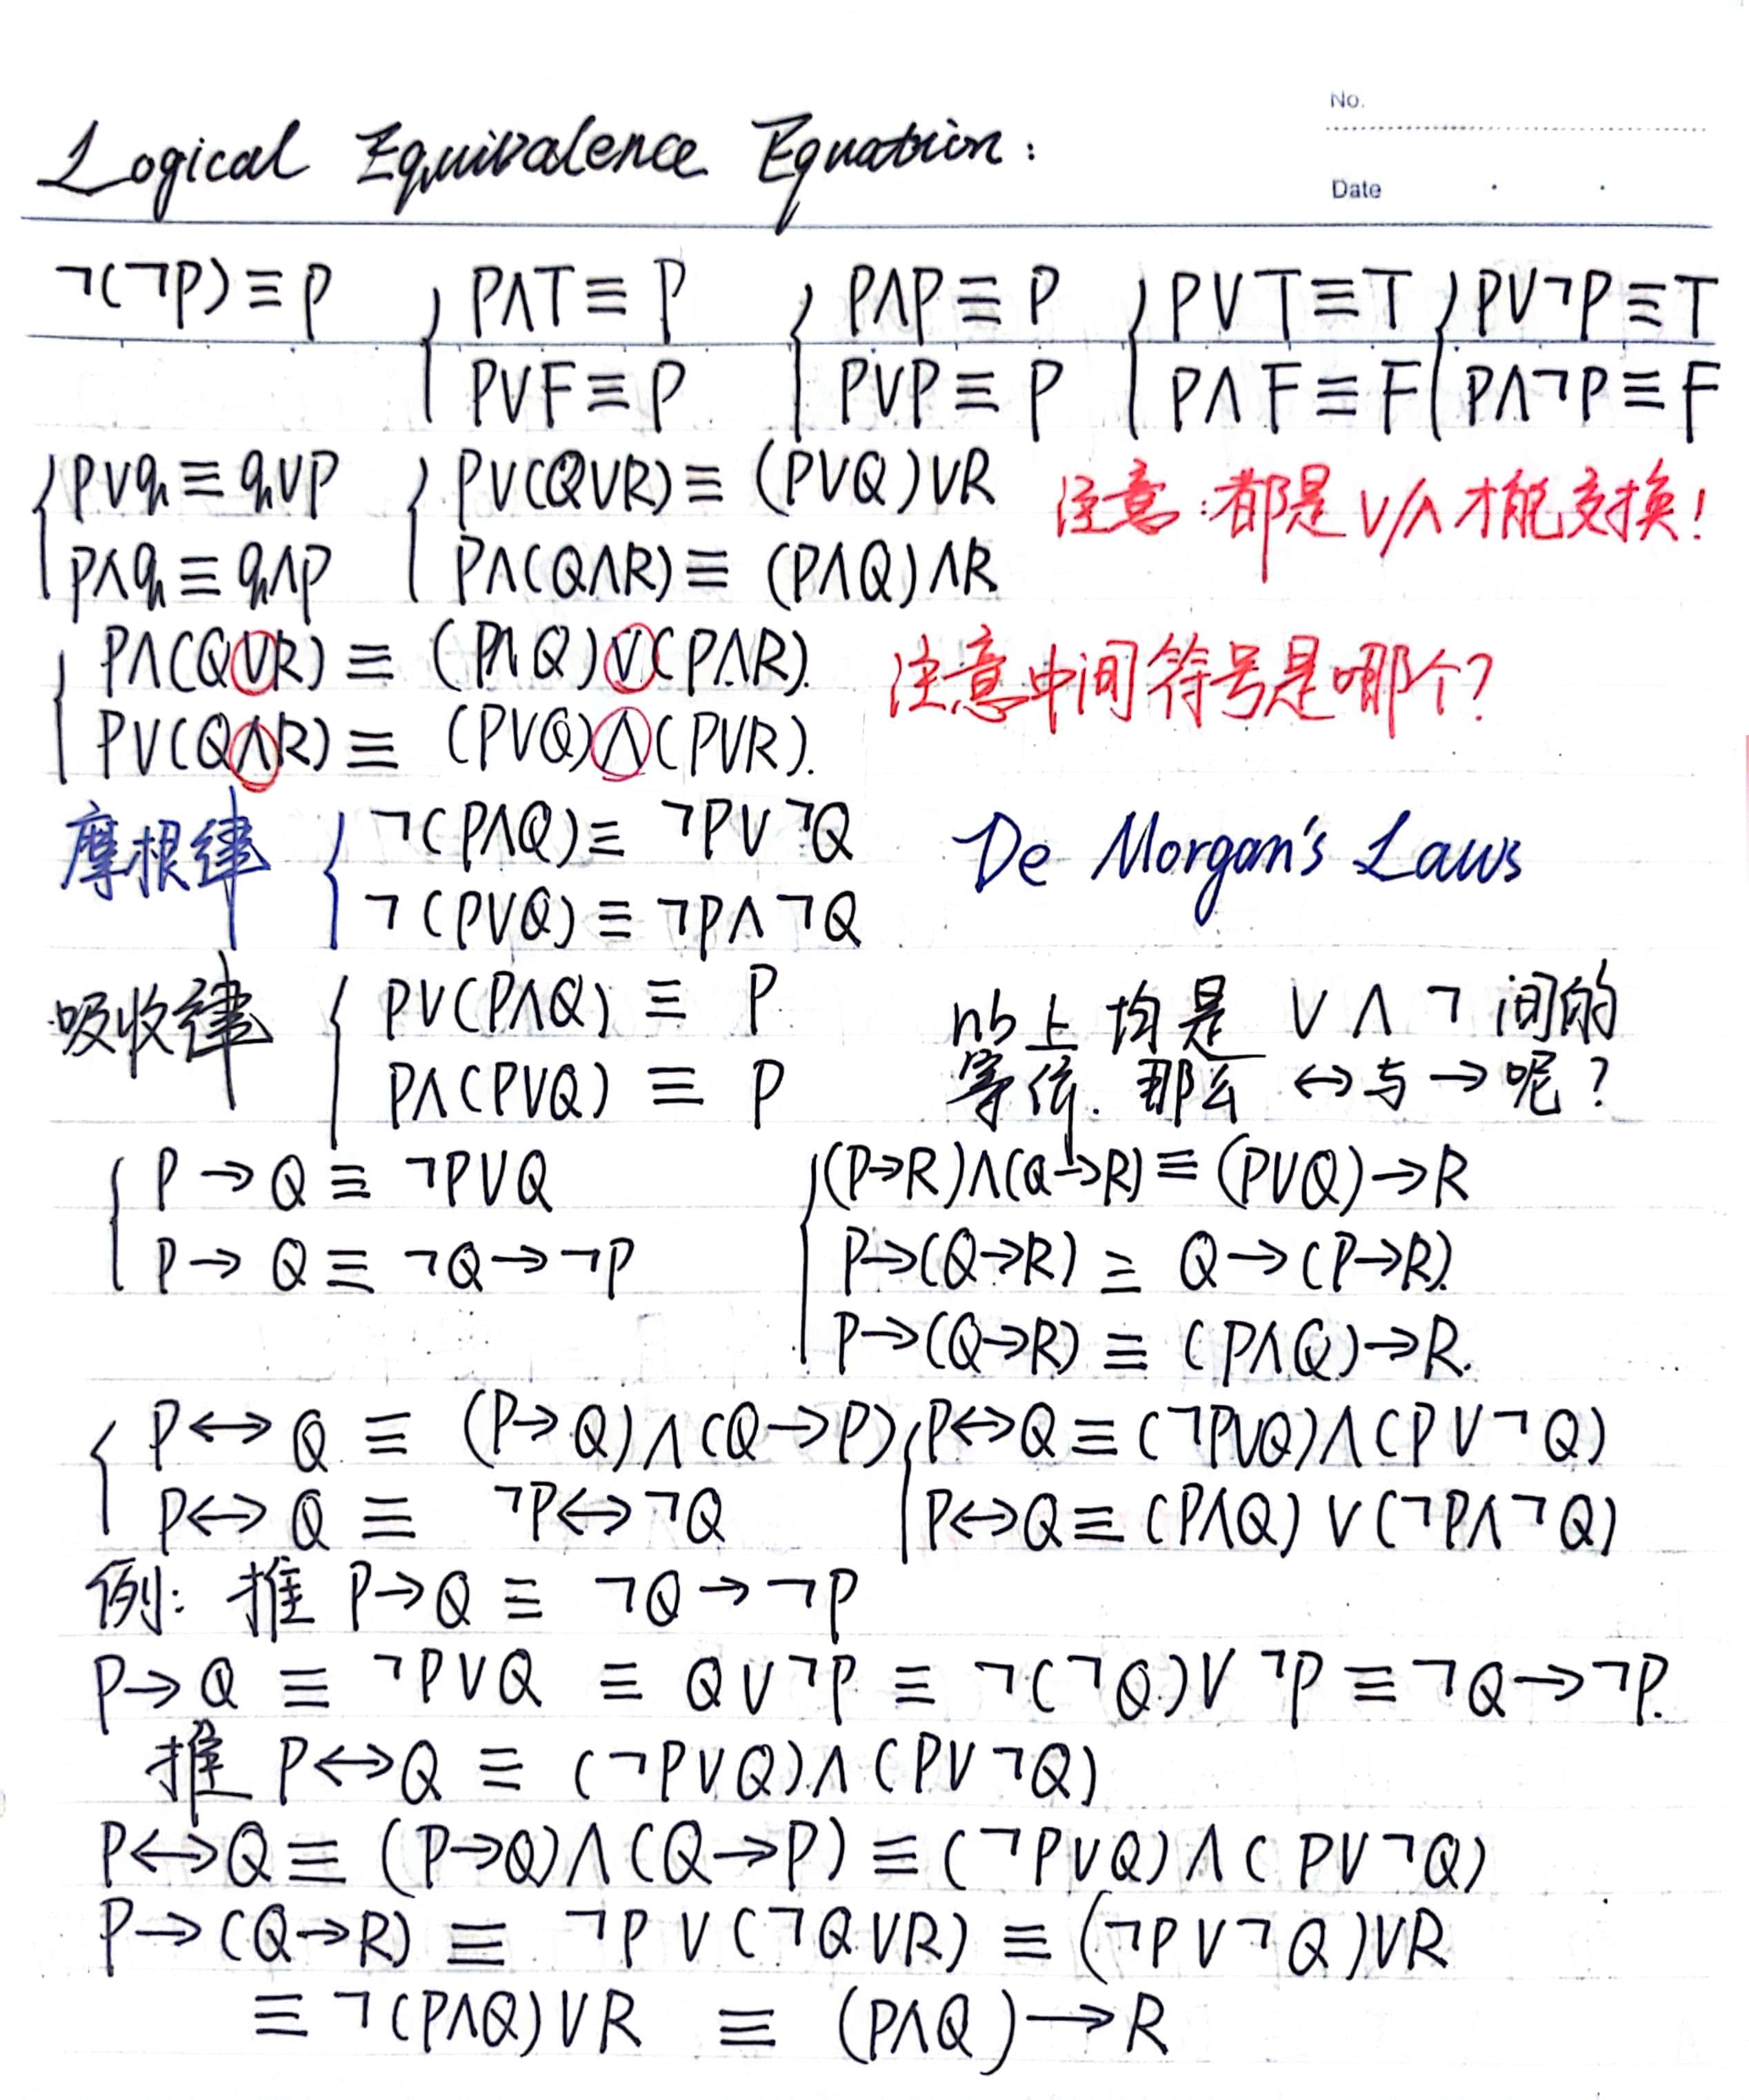 No.
Logical Equivalence Equation:
Date
¬(¬P)≡P { P∧T≡P { P∧P≡P { P∨T≡T { P∨¬P≡T
P∨F≡P P∨P≡P P∧F≡F P∧¬P≡F
{ p∨q≡q∨p { P∨(Q∨R)≡(P∨Q)∨R 注意:都是∨/∧才能交换!
p∧q≡q∧p P∧(Q∧R)≡(P∧Q)∧R
{ P∧(Q∨R)≡(P∧Q)∨(P∧R). 注意中间符号是哪个?
P∨(Q∧R)≡(P∨Q)∧(P∨R).
摩根律 { ¬(P∧Q)≡¬P∨¬Q De Morgan's Laws
¬(P∨Q)≡¬P∧¬Q
吸收律 { P∨(P∧Q)≡P nb上均是 ∨ ∧ ¬ 间的
P∧(P∨Q)≡P 等价. 那么 ↔与→呢?
{ P→Q≡¬P∨Q { (P→R)∧(Q→R)≡(P∨Q)→R
P→Q≡¬Q→¬P P→(Q→R)≡Q→(P→R).
P→(Q→R)≡(P∧Q)→R.
{ P↔Q≡(P→Q)∧(Q→P) { P↔Q≡(¬P∨Q)∧(P∨¬Q)
P↔Q≡¬P↔¬Q P↔Q≡(P∧Q)∨(¬P∧¬Q)
例: 推 P→Q≡¬Q→¬P
P→Q≡¬P∨Q≡Q∨¬P≡¬(¬Q)∨¬P≡¬Q→¬P.
推 P↔Q≡(¬P∨Q)∧(P∨¬Q)
P↔Q≡(P→Q)∧(Q→P)≡(¬P∨Q)∧(P∨¬Q)
P→(Q→R)≡¬P∨(¬Q∨R)≡(¬P∨¬Q)∨R
≡¬(P∧Q)∨R≡(P∧Q)→R